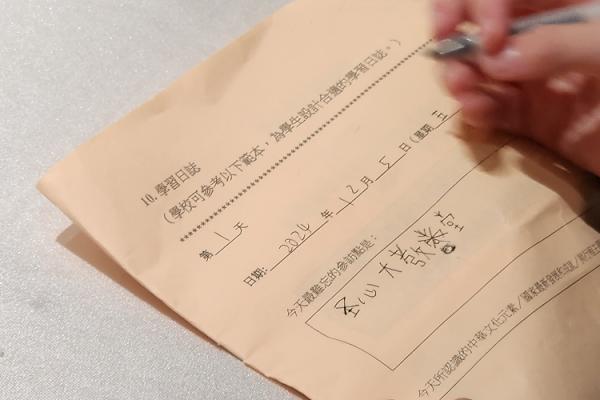 10. 學習日誌
（學校可參考以下範本，為學生設計合適的學習日誌。）
************************************************
第 1 天
日期: 2024 年 12 月 5 日 (星期 五
今天最難忘的參訪點是：
圣心大教堂
今天所認識的中華文化元素／國家最新發展和成就／